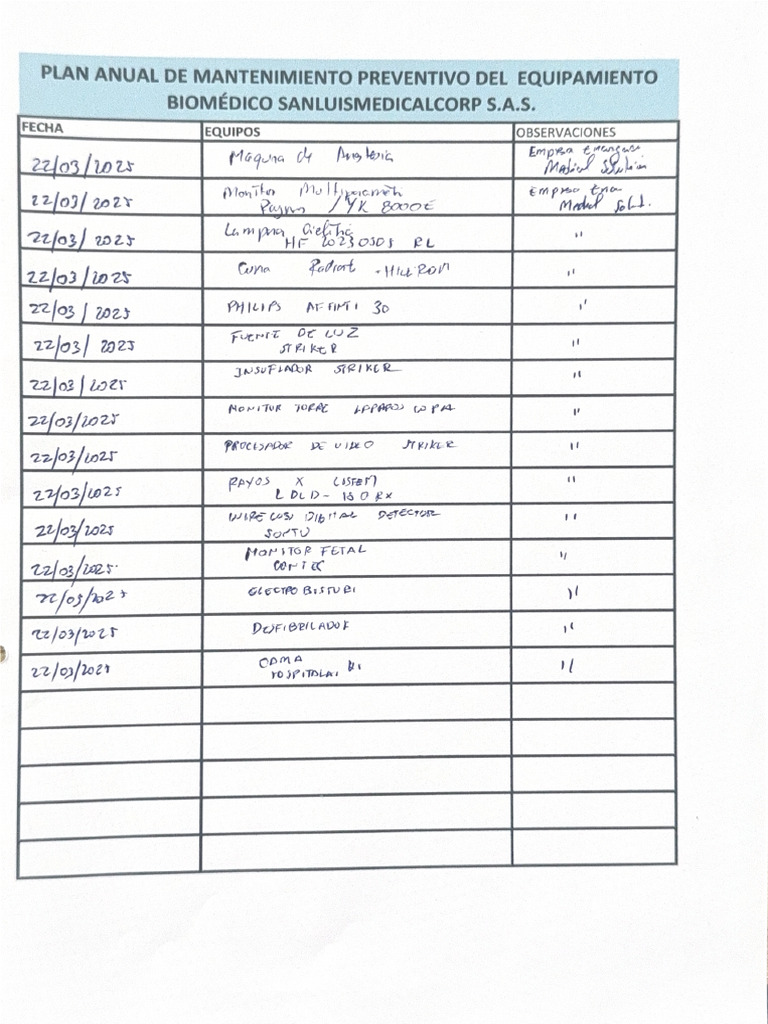 PLAN ANUAL DE MANTENIMIENTO PREVENTIVO DEL EQUIPAMIENTO
BIOMÉDICO SANLUISMEDICALCORP S.A.S.
FECHA EQUIPOS OBSERVACIONES
22/03/2025 Maquina de Empresa
Medical
22/03/2025 Monitor Empresa
/YK 8000E
22/03/2025 Lampara "
HF RL
22/03/2025 Cuna HILLROM "
22/03/2025 PHILIPS AFFINITI 30 "
22/03/2025 FUENTE DE LUZ "
STRIKER
22/03/2025 INSUFLADOR STRIKER "
22/03/2025 MONITOR TORRE "
22/03/2025 PROCESADOR DE VIDEO STRIKER "
22/03/2025 RAYOS X "
22/03/2025 DIGITAL DETECTOR "
22/03/2025 MONITOR FETAL "
CONTEC
22/03/2025 ELECTRO BISTURI "
22/03/2025 DESFIBRILADOR "
22/03/2025 CAMA "